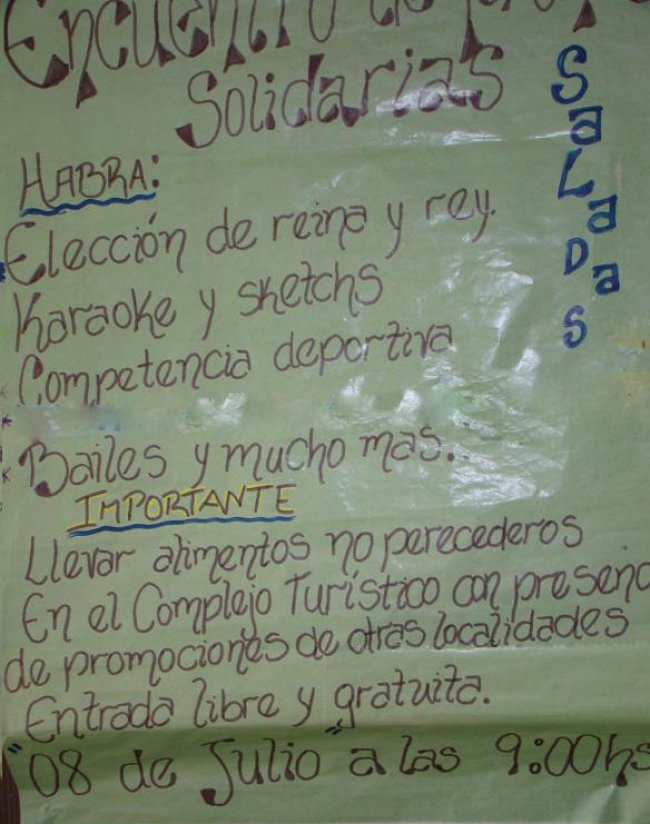 Encuentro de
Solidarias
SALADAS
HABRA:
Elección de reina y rey.
Karaoke y sketchs
Competencia deportiva
Bailes y mucho mas.
IMPORTANTE
Llevar alimentos no perecederos
En el Complejo Turístico con presenc
de promociones de otras localidades
Entrada libre y gratuita.
"08 de Julio" a las 9:00hs